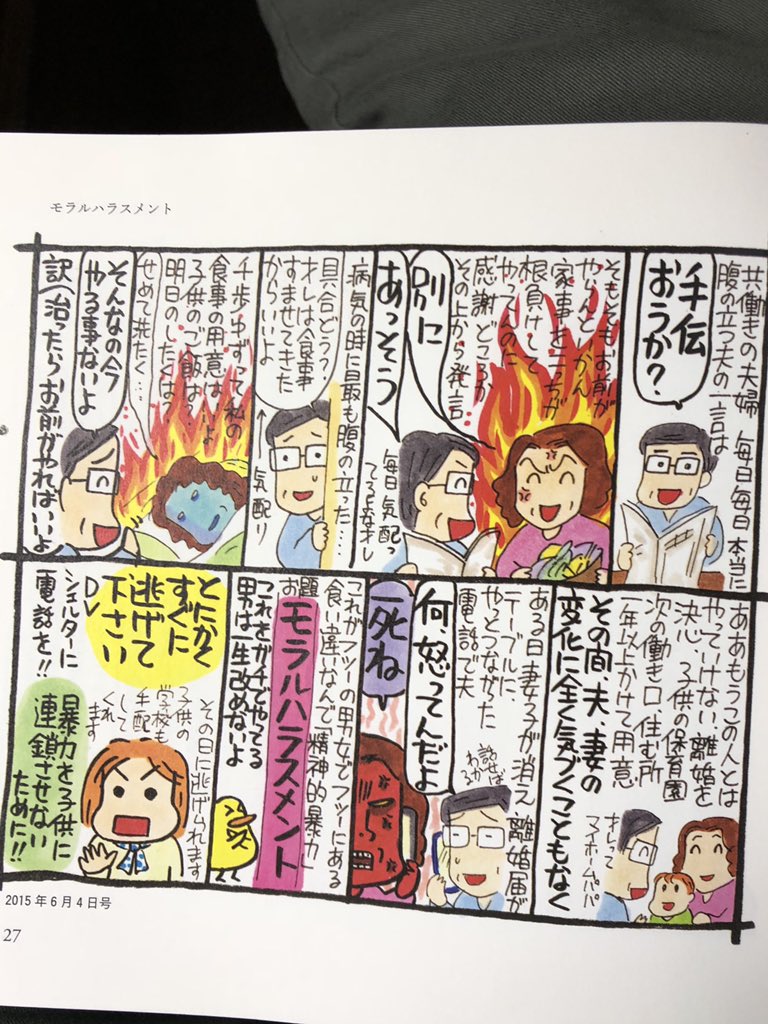 モラルハラスメント
共働きの夫婦 毎日毎日 本当に
腹の立つ夫の一言は
手伝
おうか？
そもそもお前が
やらんと あかん
家事をこっちが
根負けして
やってんのに
感謝どころか
その上から発言
別に
あっそう
毎日気配っ
てる
病気の時に目取も腹の立った…
具合どう？
オレは今食事
すませてきた
からいいよ
←気配り
千歩ゆずって私の
食事の用意はいいよ
子供のご飯は？
明日のしたくは？
せめて洗たく…
そんなの今
やる事ないよ
訳(治ったらお前がやればいいよ
ああもうこの人とは
やっていけない、離婚を
決心、子供の保育園
次の働き口 住む所
一年以上かけて用意
その間、夫、妻の
変化に全く気づくこともなく
マイホームパパ
ある日妻子が消え 離婚届が
テーブルに、
やっとつながった
電話で夫
話せば
わかる
何、怒ってんだよ
死ね
これがフツーの男女でフツーにある
食い違いなんで「精神的暴力」
お題
モラルハラスメント
これをガチでやってる
男は一生改めないよ
とにかく
すぐに
逃げて
下さい
DV
シェルターに
電話を!!
その日に逃げられます
子供の
学校も
手配
して
くれ
ます
暴力を子供に
連鎖させない
ために!!
2015年6月4日号
27